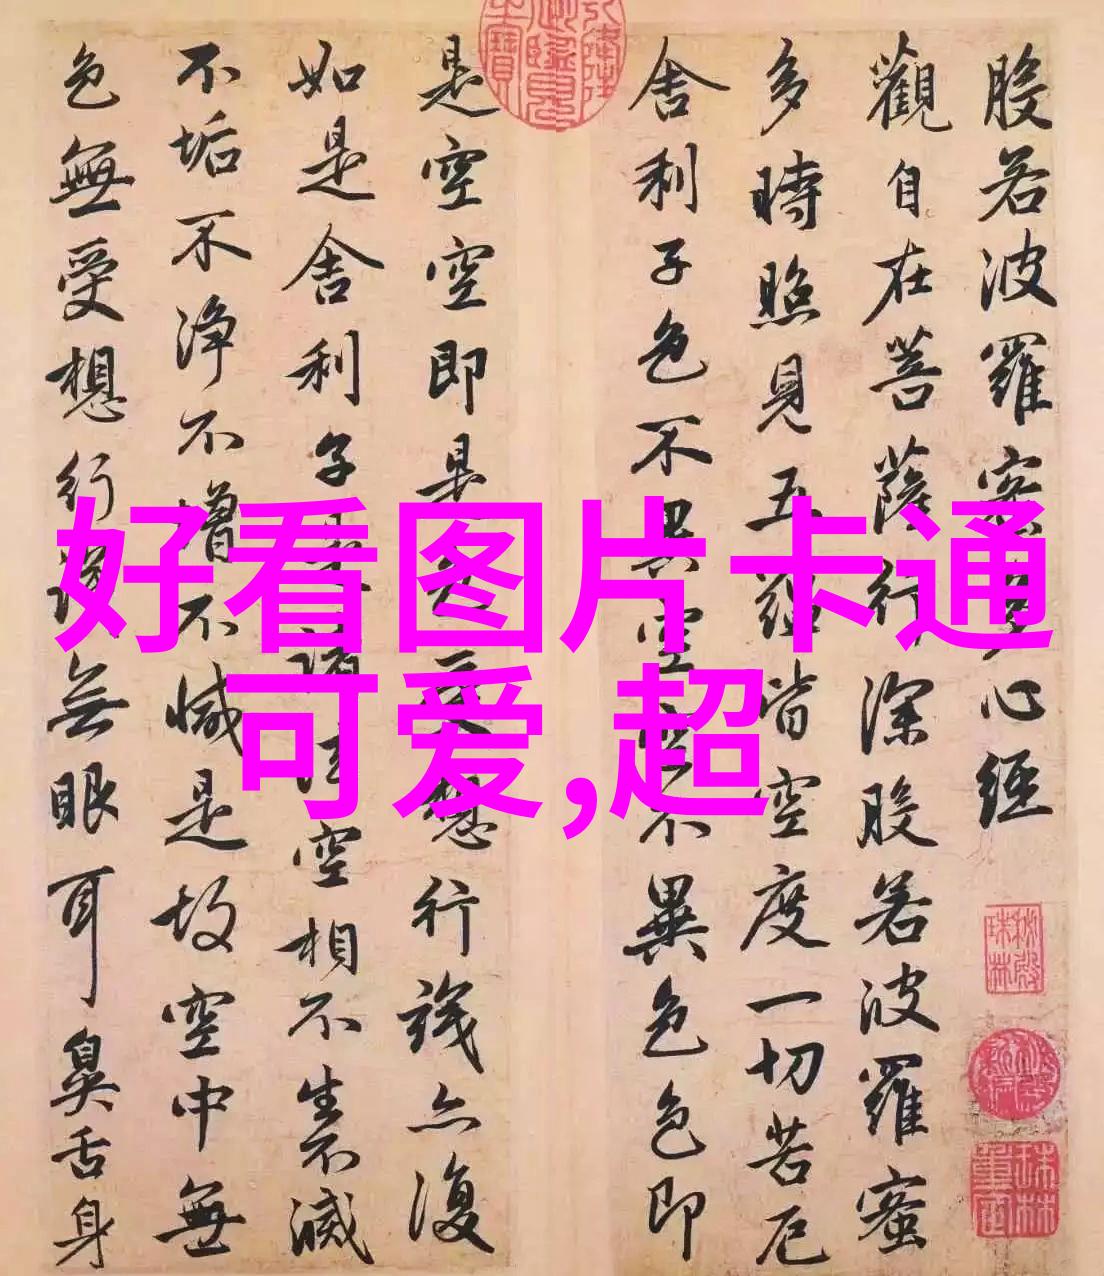 般若波羅蜜多心經
觀自在菩薩行深般若波羅蜜
多時照見五蘊皆空度一切苦厄
舍利子色不異空空不異色色即
是空空即是色受想行識亦復
如是舍利子是諸法空相不生不滅
不垢不净不增不減是故空中無
色無受想行識無眼耳鼻舌身
好看图片卡通
可爱,超